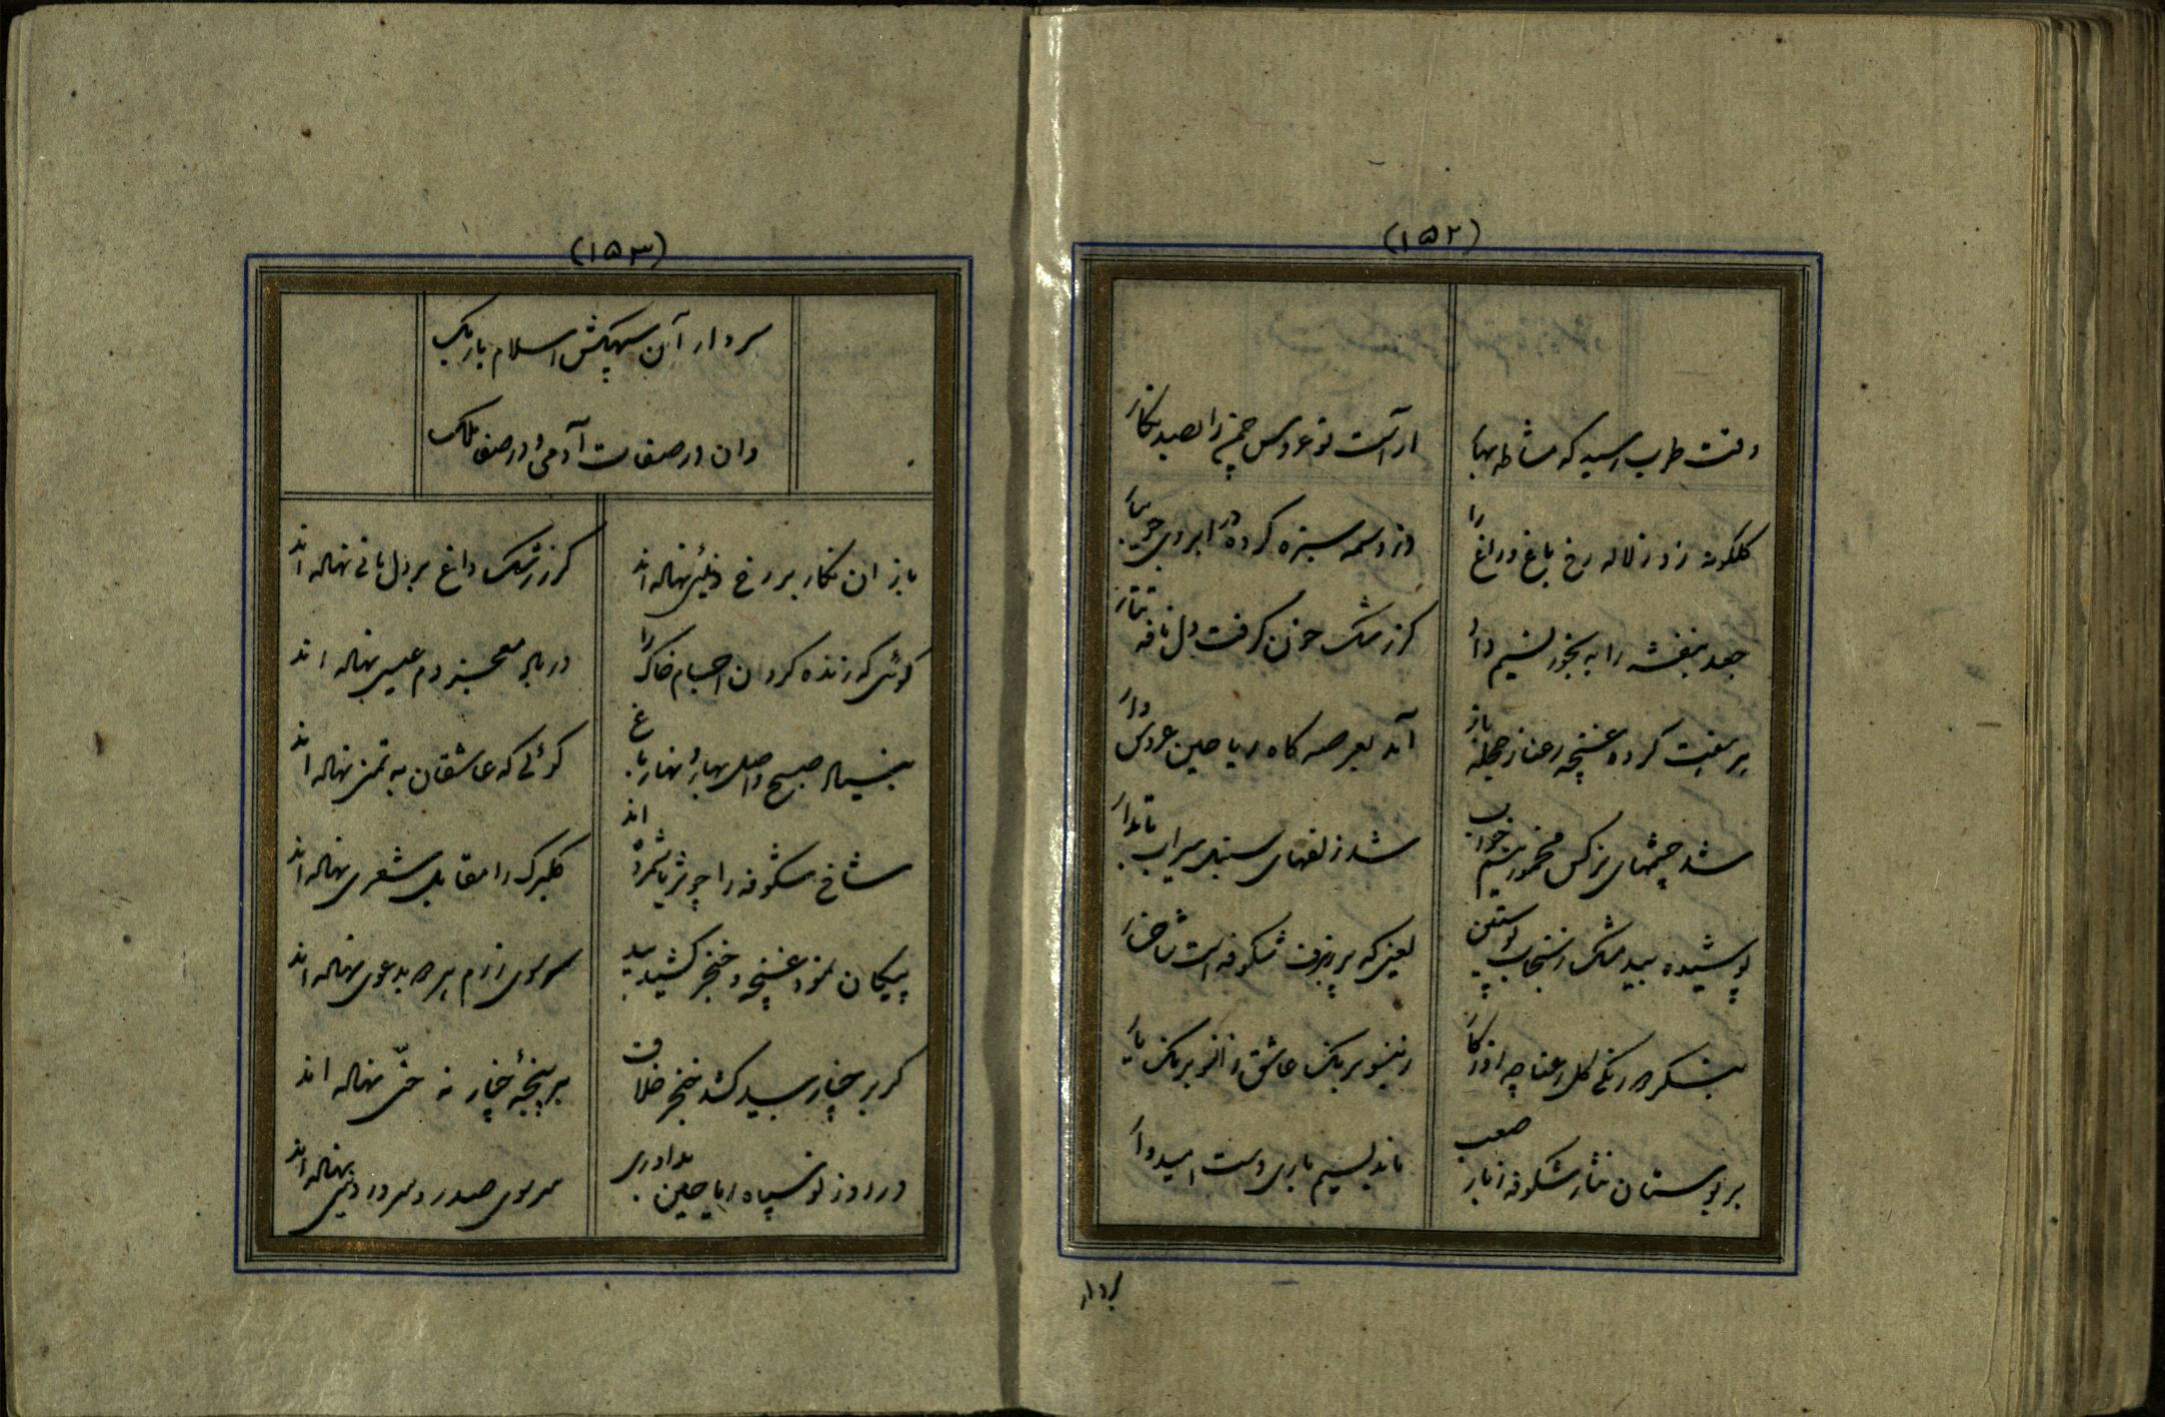 (۱۵۲)
وقت طرب رسید که مشاطه بهار
آراست نوعروس چمن را بصد نگار
گلگونه زد ز لاله رخ باغ و راغ را
وز وسمه سبزه کرده در ابروی جویبار
جعد بنفشه را به بخور نسیم داد
کز رشک خون گرفت دل نافه تتار
کرده غنچه رعنا ز حجله باز
آمد بعرصه گاه ریاحین عروس وار
شد چشمهای نرگس مخمور نیم خواب
شد زلفهای سنبل سیراب تابدار
پوشیده بید مشک ز سنجاب پوستین
یعنی که پر ز برف شکوفه است شاخسار
بنگر دو رنگی گل رعنا چه آذر کار
زینسو برنگ عاشق و زانسو برنگ یار
بر بوستان نثار شکوفه ز باد صعب
ماند بسیم باری دست امیدوار
سردار
(۱۵۳)
سردار آن سپهکش اسلام باربک
وان در صفات آدمی و در صفا ملک
باز آن نگار بر رخ نهاله اند
کز رشک داغ بر دل مانی نهاله اند
گوئی که زنده کردن اجسام خاک را
در باد صبحخیز دم عیسی نهاله اند
بنیاد صبح واصل بهار و نهار باغ
گوئی که عاشقان به تمنی نهاله اند
شاخ شکوفه را چو ثریا شمرده اند
گلبرگ را مقابل شعری نهاله اند
پیکان نمود غنچه و خنجر کشید بید
سر سوی رزم هر دو بدعوی نهاله اند
گر بر چنار بید کشد خنجر خلاف
بر پنجهٔ چنار نه حنّی نهاله اند
در روز نو سپاه ریاحین بداوری
سر سوی صدر و سرور دنیی نهاله اند